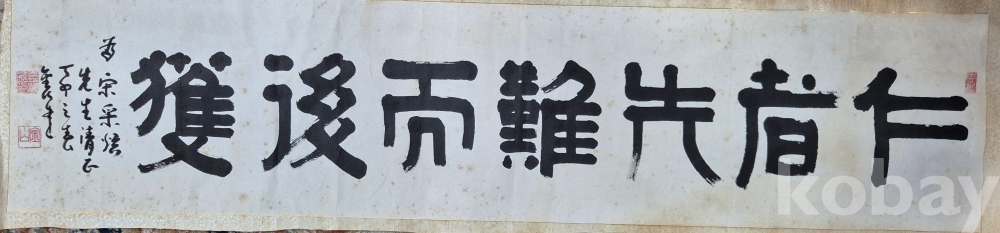 仁者先難而後獲
為 宋采
先生清正
丁卯之春
kobay